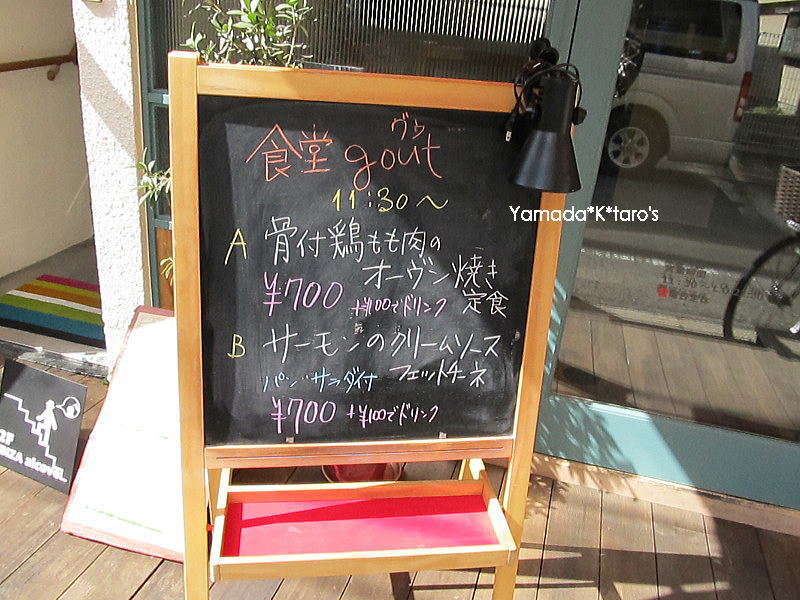 ヴゥ
食堂 gout
11:30～
A 骨付鶏もも肉の
オーヴン焼き
¥700 +¥100でドリンク 定食
B サーモンのクリームソース
パン・サラダ付 フェットチーネ
¥700 +¥100でドリンク
Yamada*K*taro's
2F